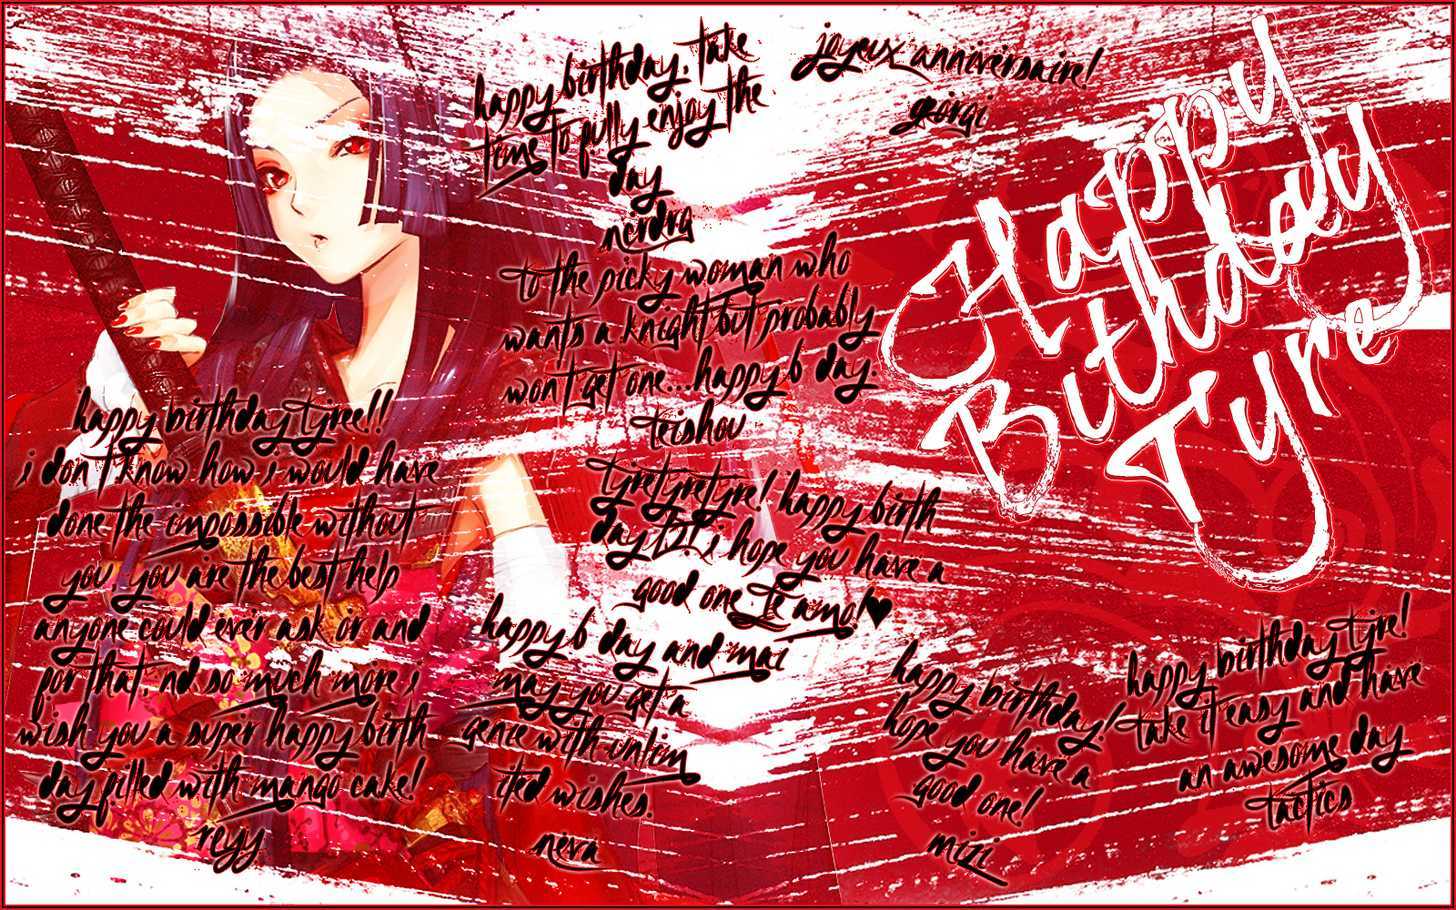 Happy
Bithday
Tyre
happy birthday. take
time to fully enjoy the
day
nerdra
joyeux anniversaire!
georgi
to the picky woman who
wants a knight but probably
won't get one...happy b day.
teishou
happy birthday tyree!!
i don't know how i would have
done the impossible without
you. you are the best help
anyone could ever ask or and
for that, nd so much more i
wish you a super happy birth
day filled with mango cake!
reyy
tyretyretyre! happy birth
day i hope you have a
good one. Te amo!♥
happy b day and mai
may you get a
genie with unlim
ited wishes.
neva
happy birthday!
hope you have a
good one!
mizi
happy birthday tyre!
take it easy and have
an awesome day
tactics